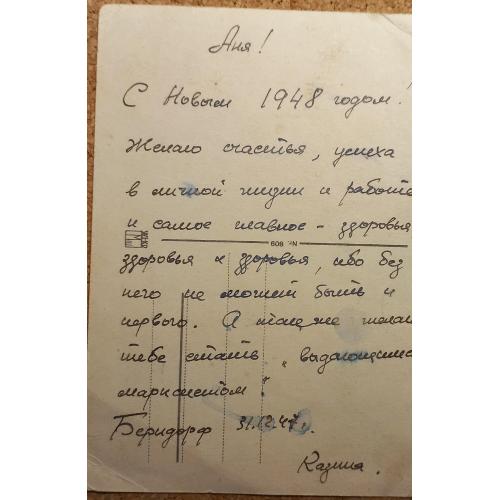 Аня!
С Новым 1948 годом!
Желаю счастья, успеха
в личной жизни и работе
и самое главное - здоровья
No. 609
здоровья и здоровья, ибо без
него не может быть и
первого. А также желаю
тебе стать „выдающимся
марксистом“.
Берндорф 31.12.47г.
Казина.